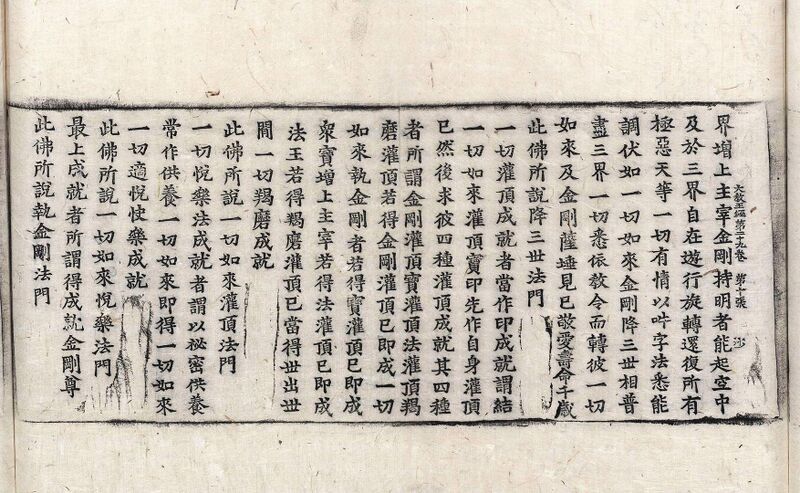 界增上主宰金剛持明者能起空中
大教王經第二十九卷 第十張 沙
及於三界自在遊行旋轉還復所有
極惡天等一切有情以吽字法悉能
調伏如一切如來金剛降三世相普
盡三界一切悉依教令而轉彼一切
如來及金剛薩埵見已敬愛壽命千歲
此佛所說降三世法門
一切灌頂成就者當作印成就謂結
一切如來灌頂寶印先作自身灌頂
已然後求彼四種灌頂成就其四種
者所謂金剛灌頂寶灌頂法灌頂羯
磨灌頂若得金剛灌頂已即成一切
如來執金剛者若得寶灌頂已即成
衆寶增上主宰若得法灌頂已即成
法王若得羯磨灌頂已當得世出世
間一切羯磨成就
此佛所說一切如來灌頂法門
一切悅樂法成就者謂以祕密供養
常作供養一切如來即得一切如來
一切適悅快樂成就
此佛所說一切如來悅樂法門
最上成就者所謂得成就金剛尊
此佛所說執金剛法門